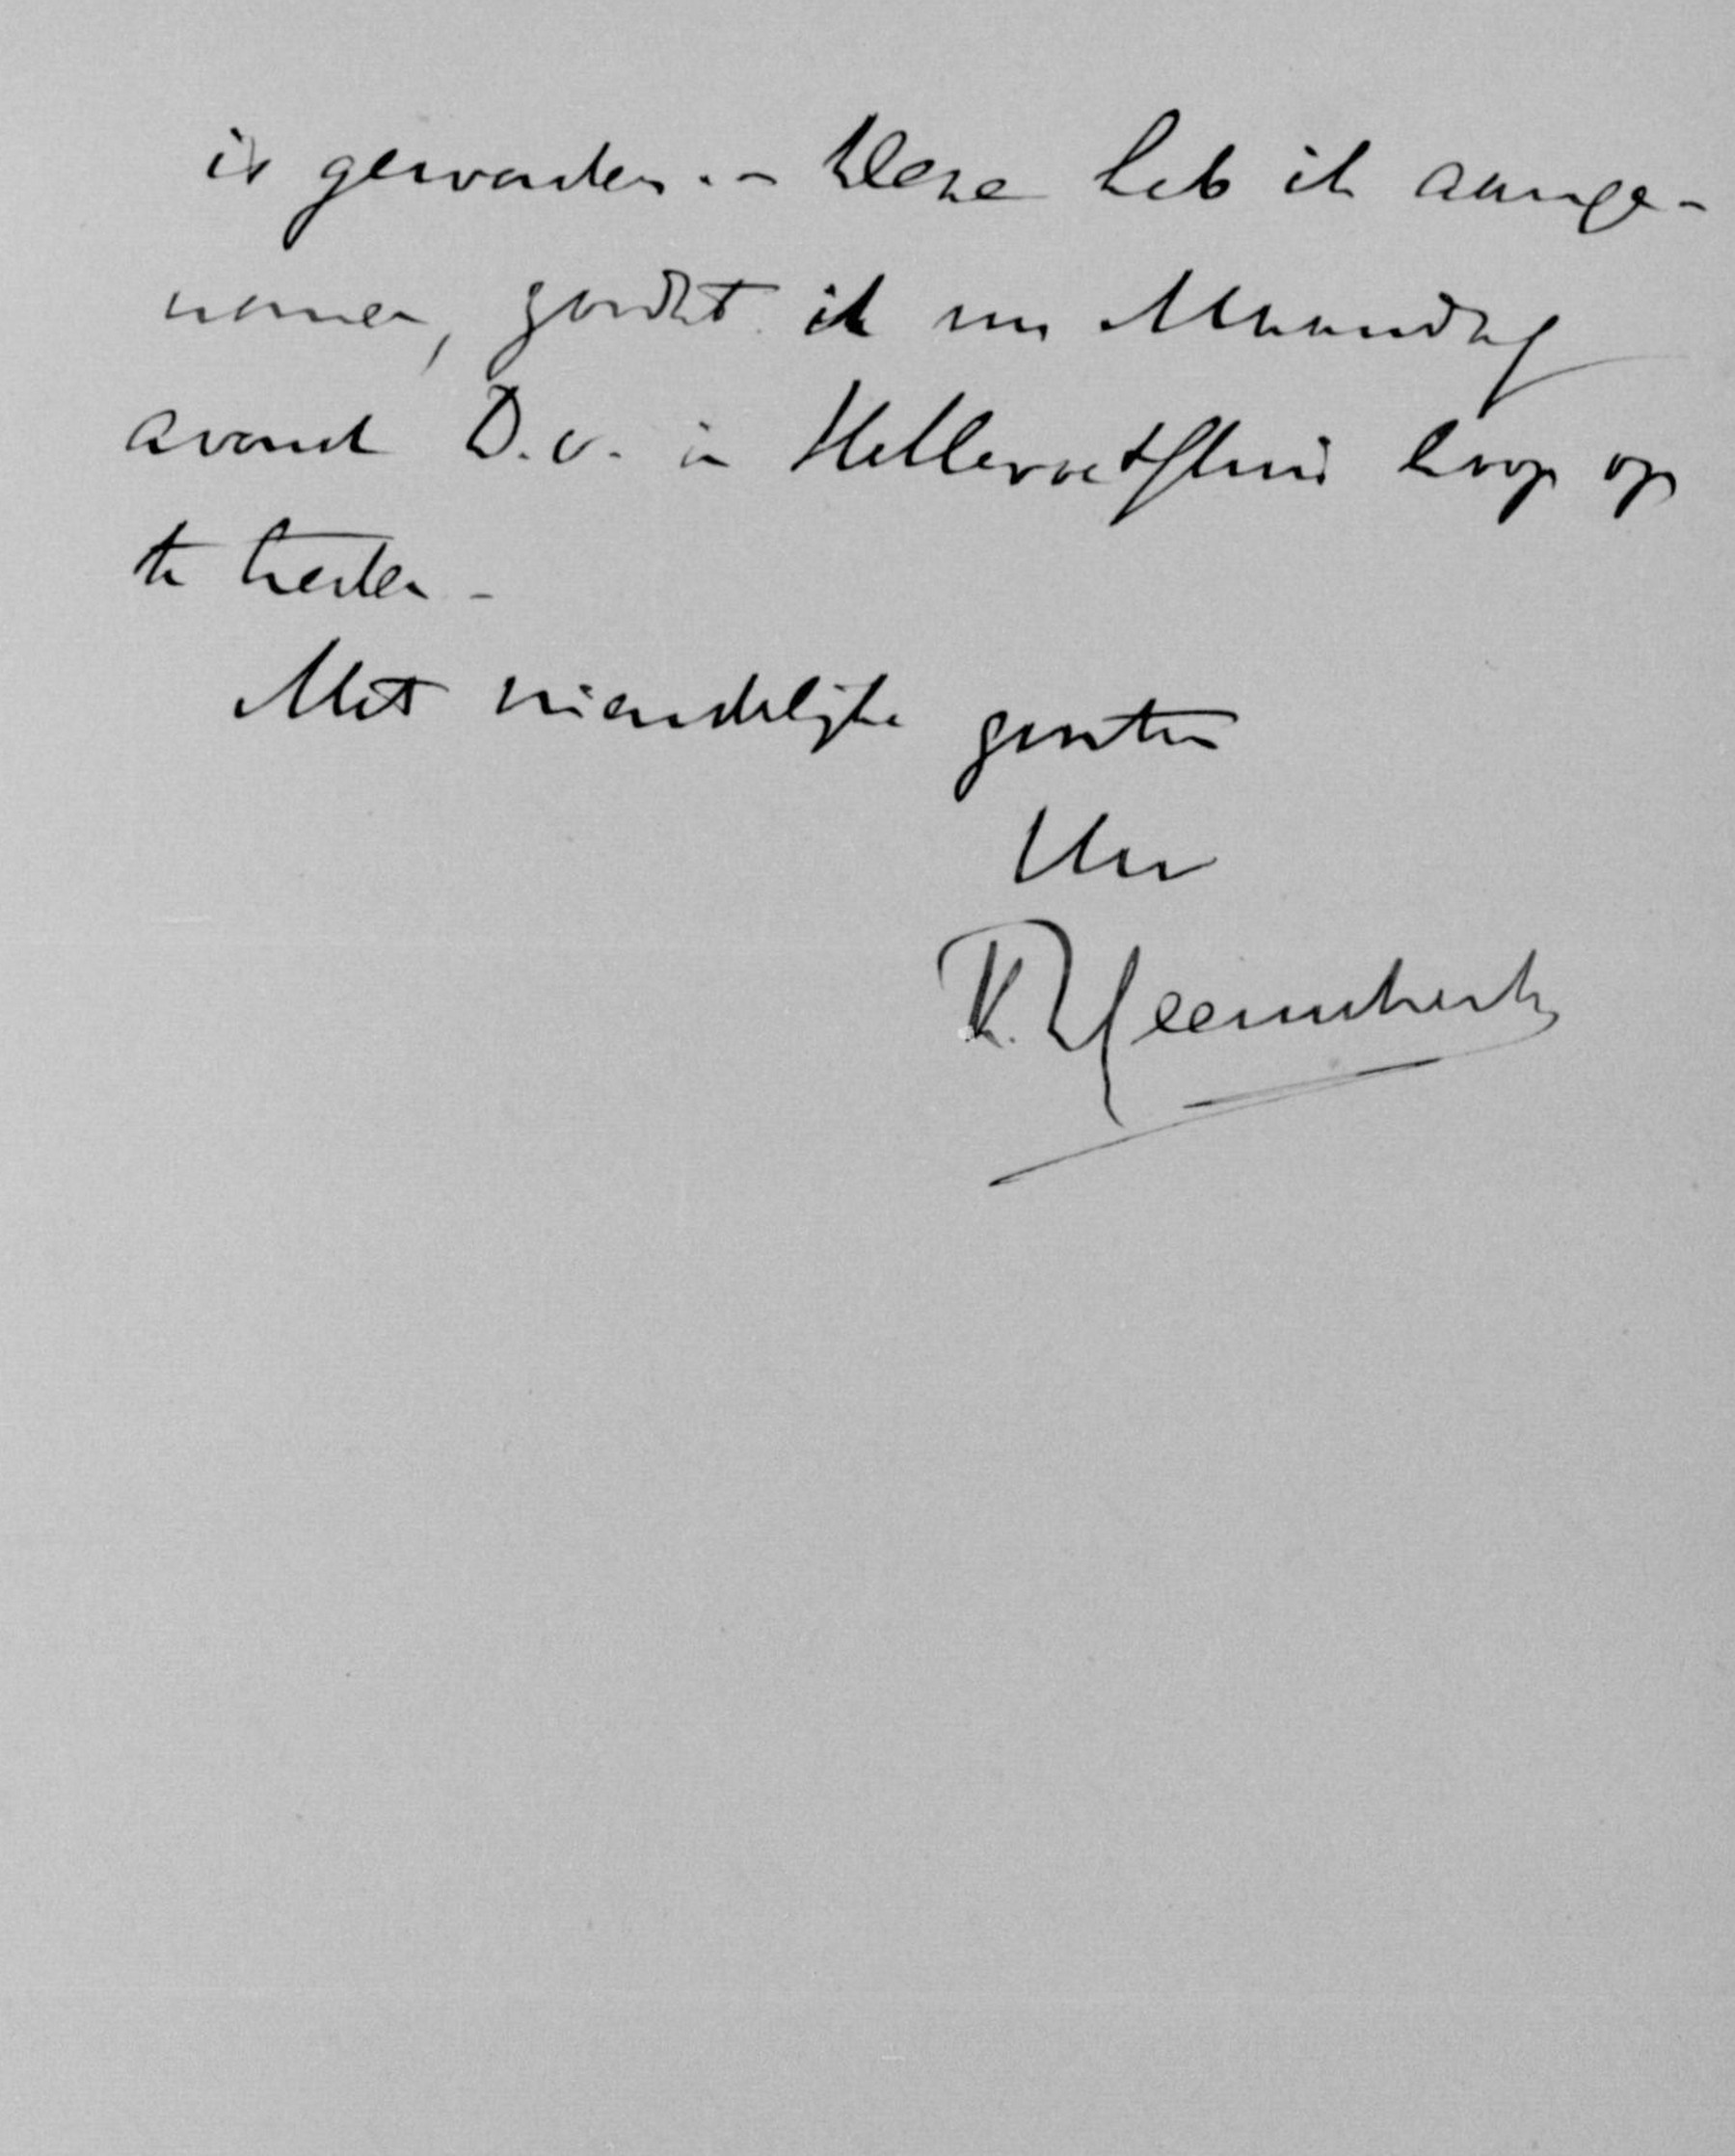 is geworden. - Deze heb ik aange-
nomen, zoodat ik nu Maandag
avond D.v. in Hellevoetsluis hoop op
te treden -
Met vriendelijke groeten
Uw